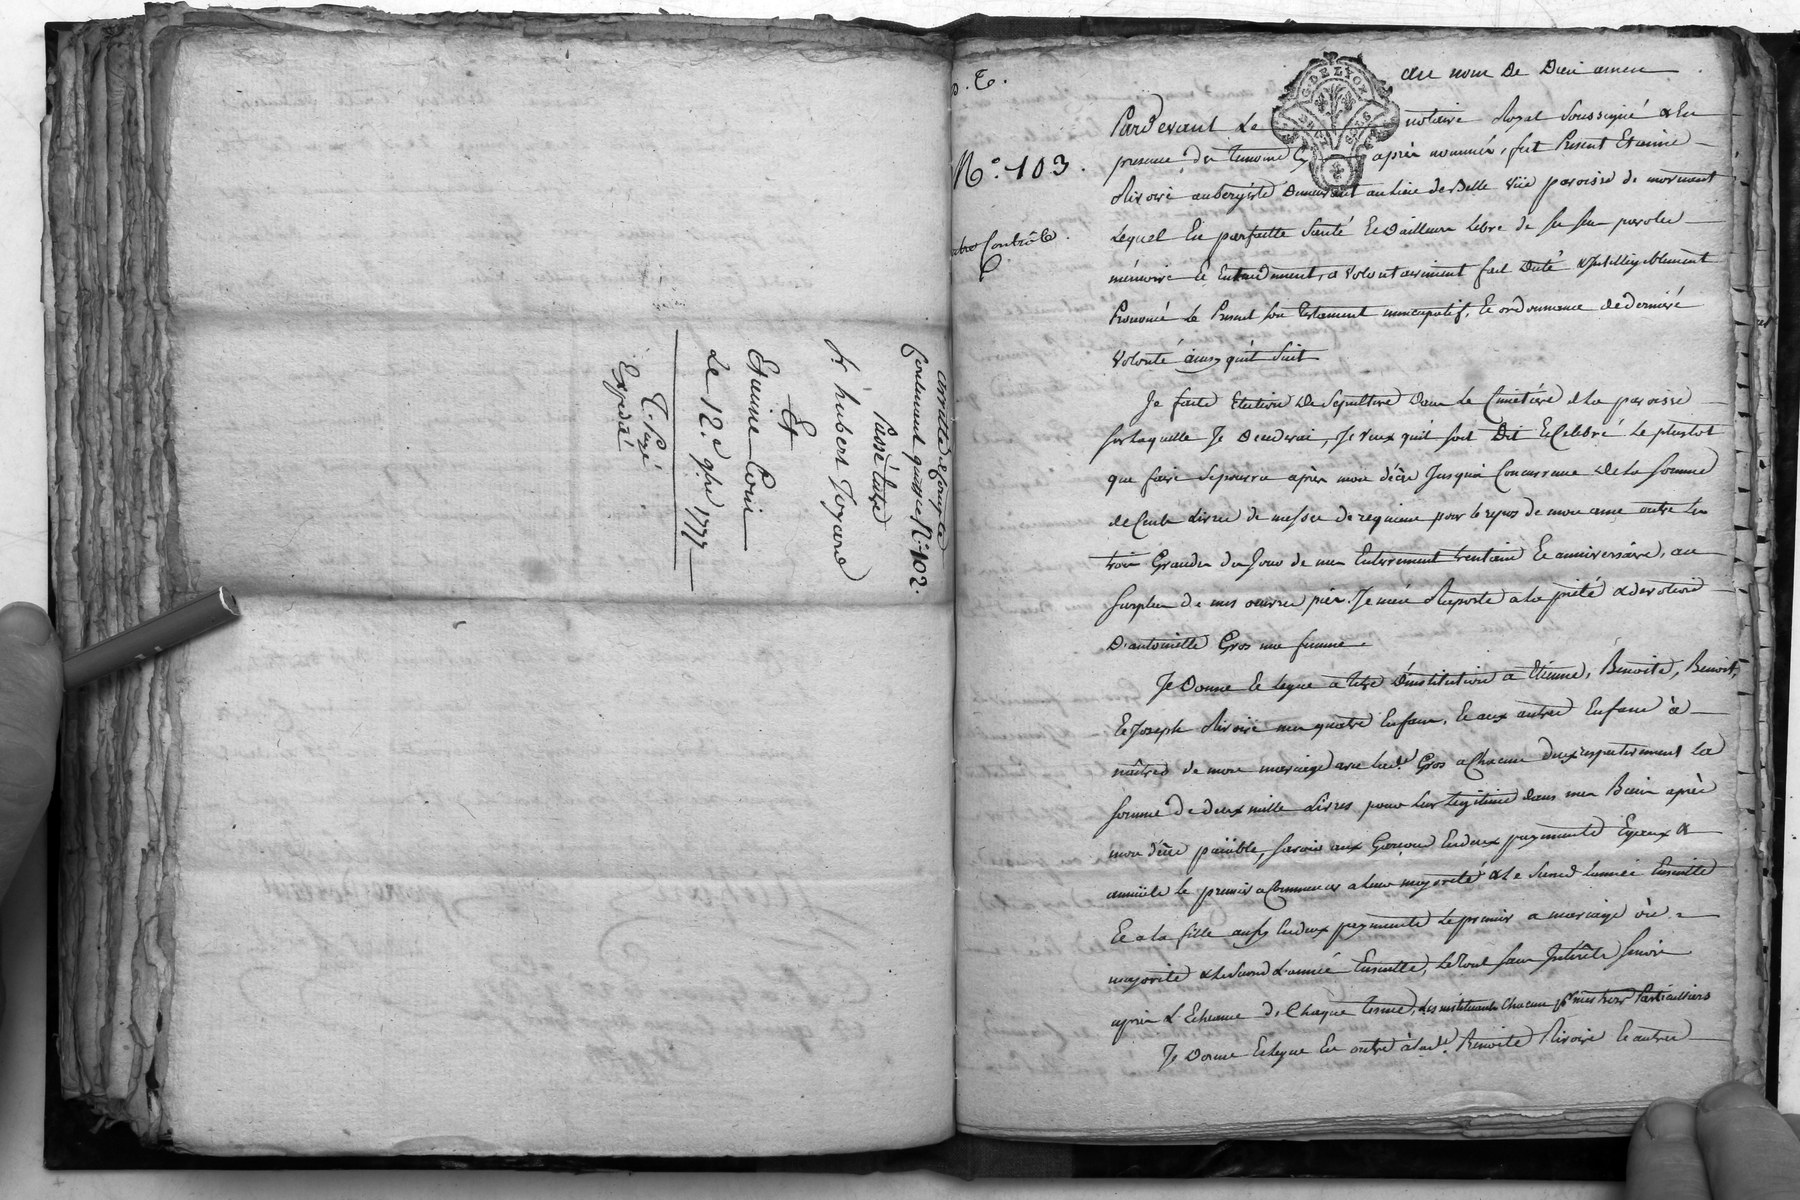 Arrêté de Compte
Contenant quittce N.° 102.
Passé Entre
Sr. hubert Joyard
Et
Etienne
Le 12.e 9bre 1777
Expedié
N.° 103.
Contrôlé
G. DE LYON
Au nom De Dieu amen
Pardevant Le notaire Royal Soussigné & En
presence des temoins cy après nommés, fut Present Etienne
Rivoire aubergiste Demeurant au lieu de Belle Vüe paroisse de mornant
Lequel En parfaitte Santé Et D'ailleurs Libre de ses sens paroles
mémoire Et Entendement, a Volontairement fait Dicté & Intelligiblement
Prononcé Le Present son Testament nuncupatif, Et ordonnance de derniere
Volonté ainsy qu'il Suit
Je faits Election De Sépulture Dans Le Cimétière de La paroisse
sur laquelle Je Decederai, Je Veux qu'il soit Dit Et Celebré Le plustot
que faire Se pourra après mon décès Jusqu'a Concurrance De La somme
de Cent Livres de messes de requiem pour le repos de mon ame outre Les
trois Grandes du Jour de mon Enterrement trentaine Et anniversaire, au
surplus de mes oeuvres pies. Je m'en Rapporte a La piété & devotion
D'antoinette Gros ma femme.
Je Donne Et Legue a titre D'institution a Etienne, Benoite, Benoit,
Et Joseph Rivoire mes quatre Enfans, Et aux autres Enfans à
naître de mon mariage avec Lad.e Gros a Chacun d'eux respectivement La
somme De deux mille Livres pour Leur Legitime dans mes Biens après
mon décès païable, savoir aux Garçons En deux payments Egaux &
annüels Le premier a Commencer a Leur majorité & Le Second L'année Ensuitte
Et a La fille aussy En deux payments Le premier a mariage où
majorité & Le Second L'année Ensuitte, Le tout sans Intérêts sinon
après L'Echeance de Chaque terme, Les instituants Chacun pr mes hers Particuliers
Je Donne Et Legue En outre à Lad.e Benoite Rivoire Et autres